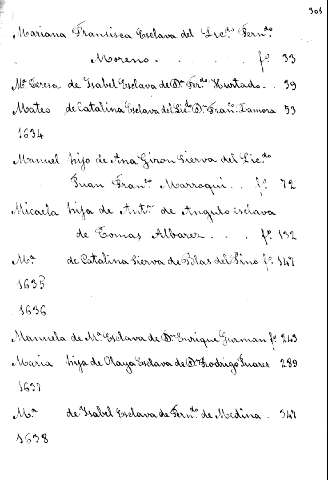 301
Mariana Francisca Esclava del Lic.do Fern.do
Moreno . . . . . . fº 33
Mª Teresa de Isabel Esclava de Dn Fer.do Hurtado . . 39
Mateo de Catalina Esclava del Lic.do Dn Fran.co Zamora 53
1634
Manuel hijo de Ana Giron Sierva del Lic.do
Juan Fran.co Marroqui . . fº 72
Micaela hija de Ant.ª de Angulo esclava
de Tomas Albarez . . . . fº 132
Mª de Catalina Sierva de Blas del Pino fº 147
1635
1636
Manuela de Mª Esclava de Dn Enrique Guzman fº 243
Maria hija de Olaya Esclava de Dn Rodrigo Juares 289
1637
Mª de Isabel Esclava de Fern.do de Medina . 347
1638